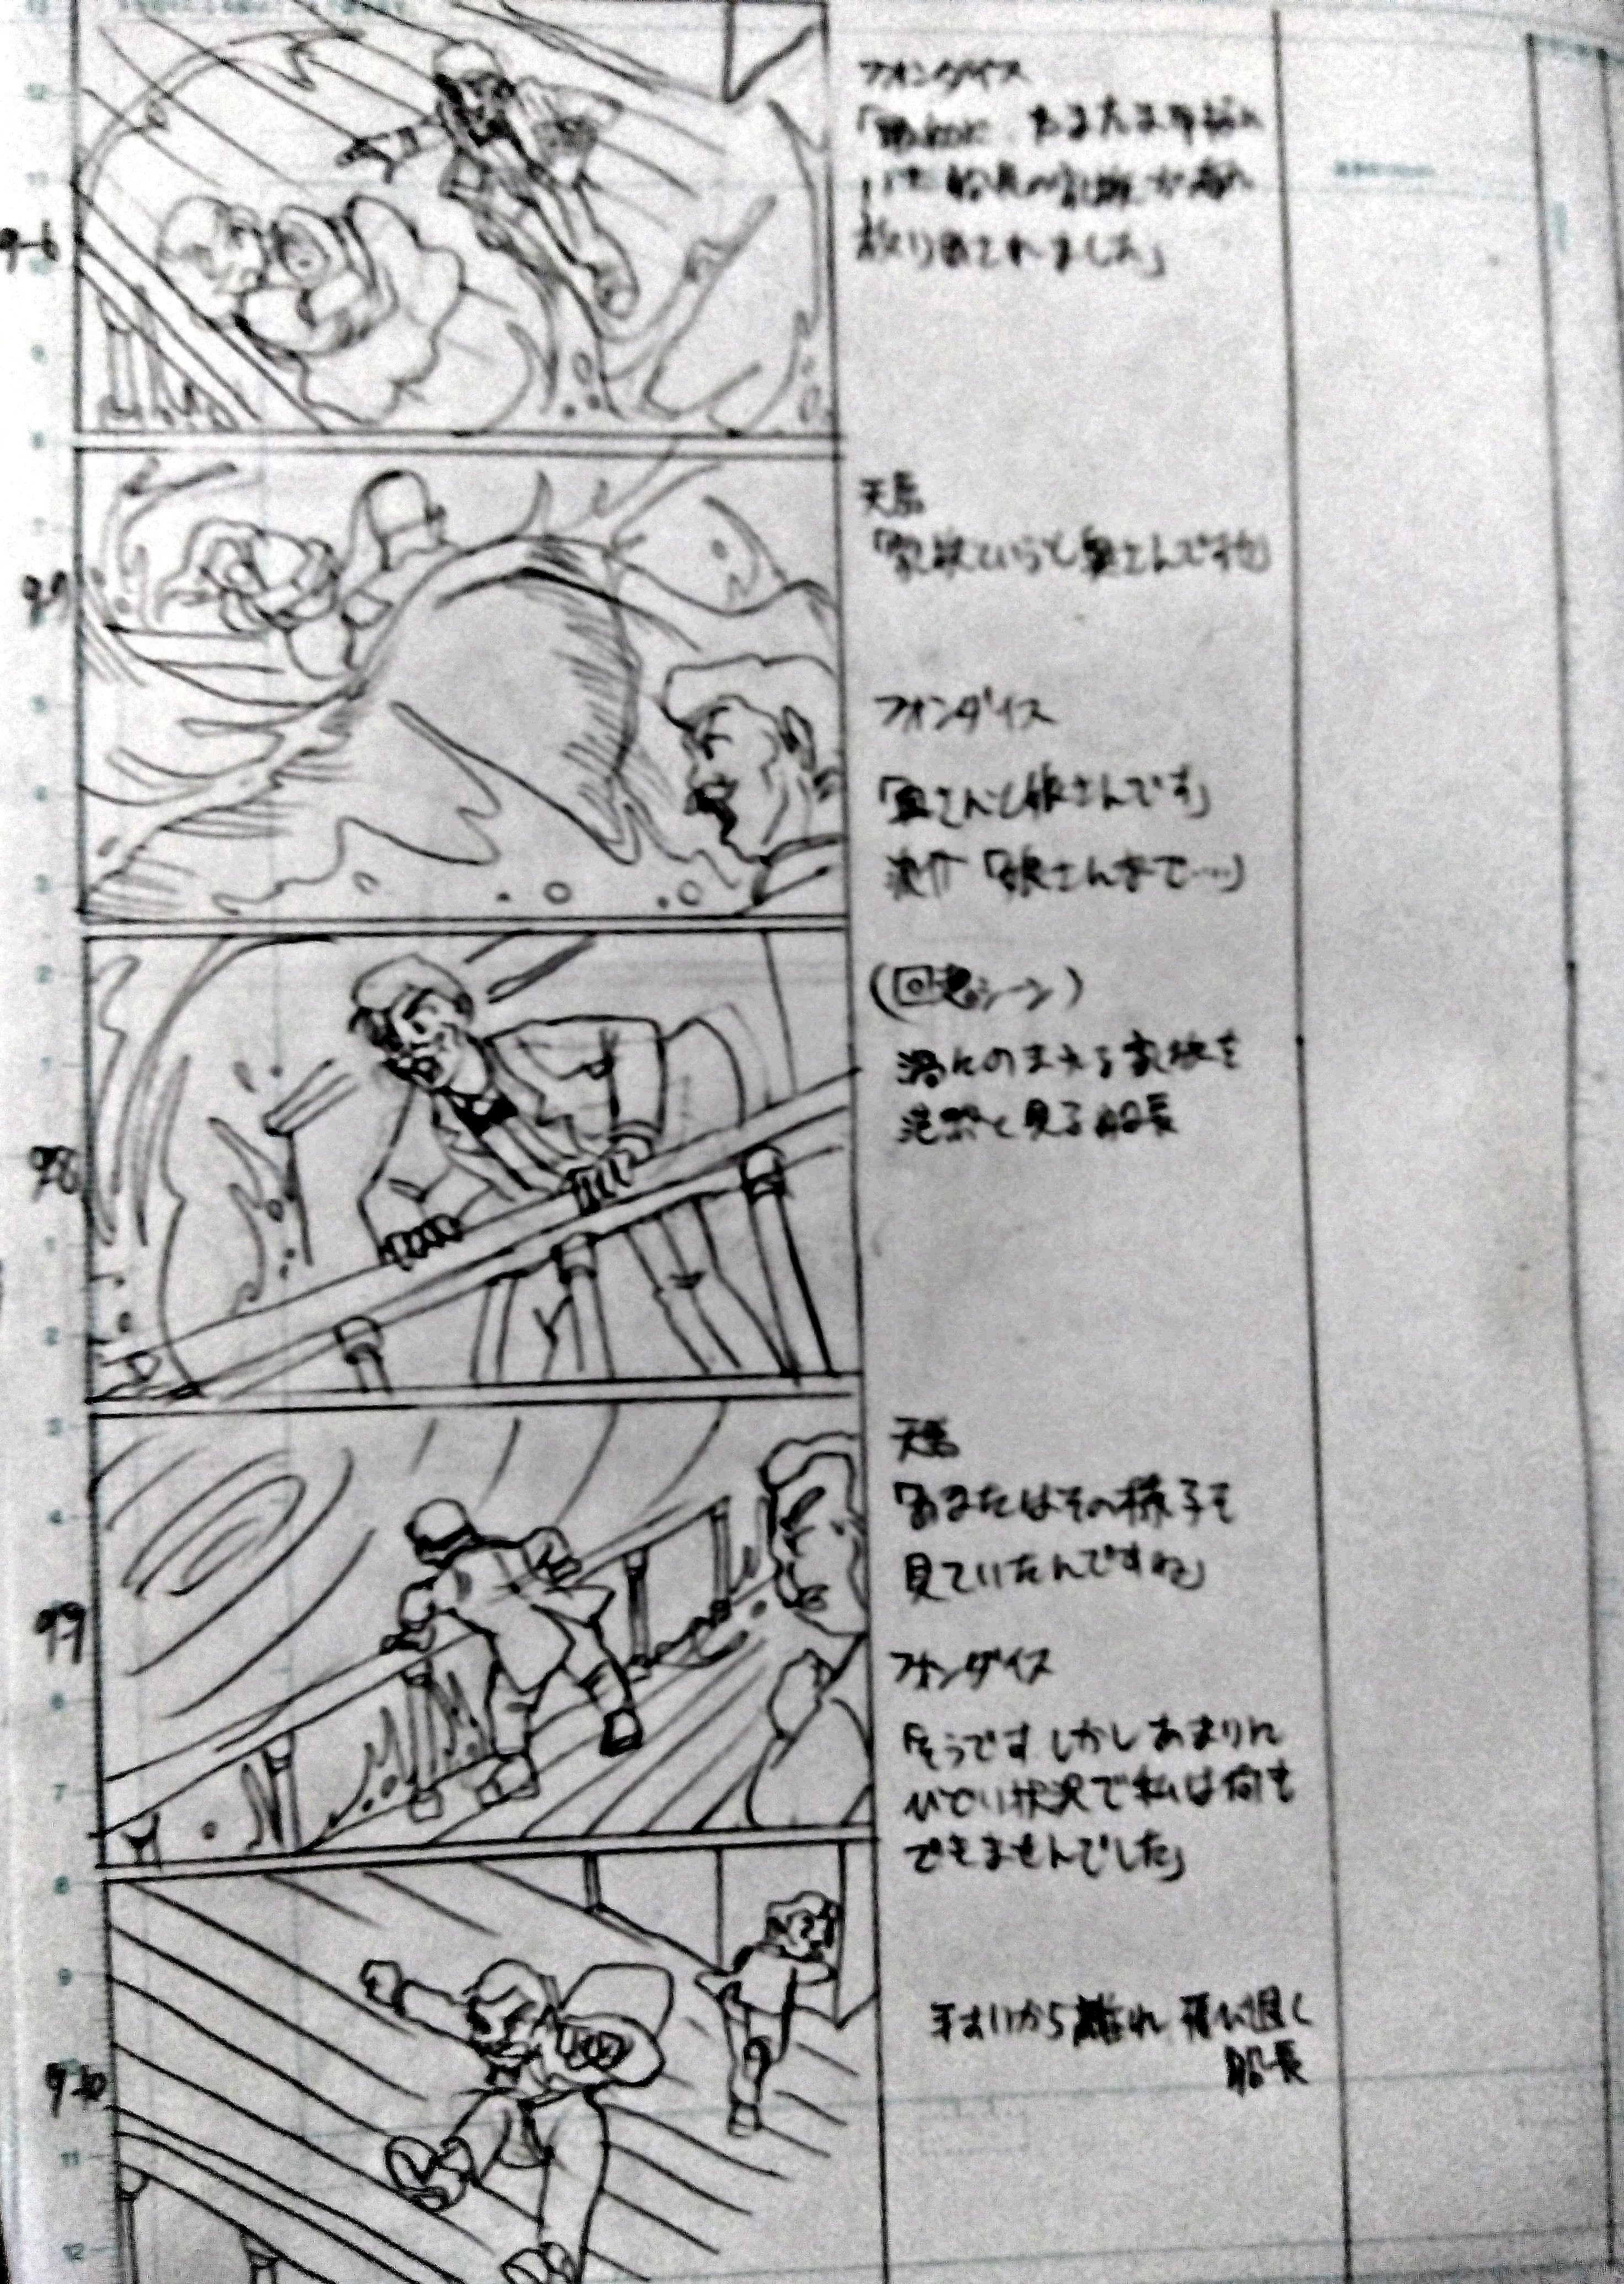 9-6
フォンダイス
いた船長の家族が海へ
放り出されました」
9-7
天馬
「家族というと奥さんですね」
フォンダイス
「奥さんと娘さんです」
「娘さんまで…」
9-8
(回想シーン)
海にのまれる家族を
呆然と見る船長
9-9
天馬
「あなたはその様子を
見ていたんですね」
フォンダイス
「そうです しかしあまりに
ひどい状況で私は何も
できませんでした」
9-10
手すりから離れ 飛び退く
船長